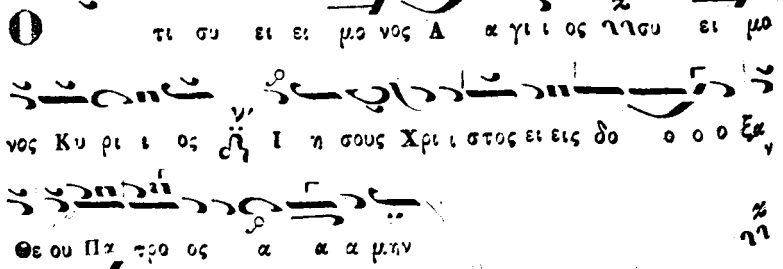 Ο τι συ ει ει μο νος Α α γι ι ος συ ει μο
νος Κυ ρι ι ος Ι η σους Χρι ι στος ει εις δο ο ο ο ξαν
Θε ου Πα τρο ος α α α μην